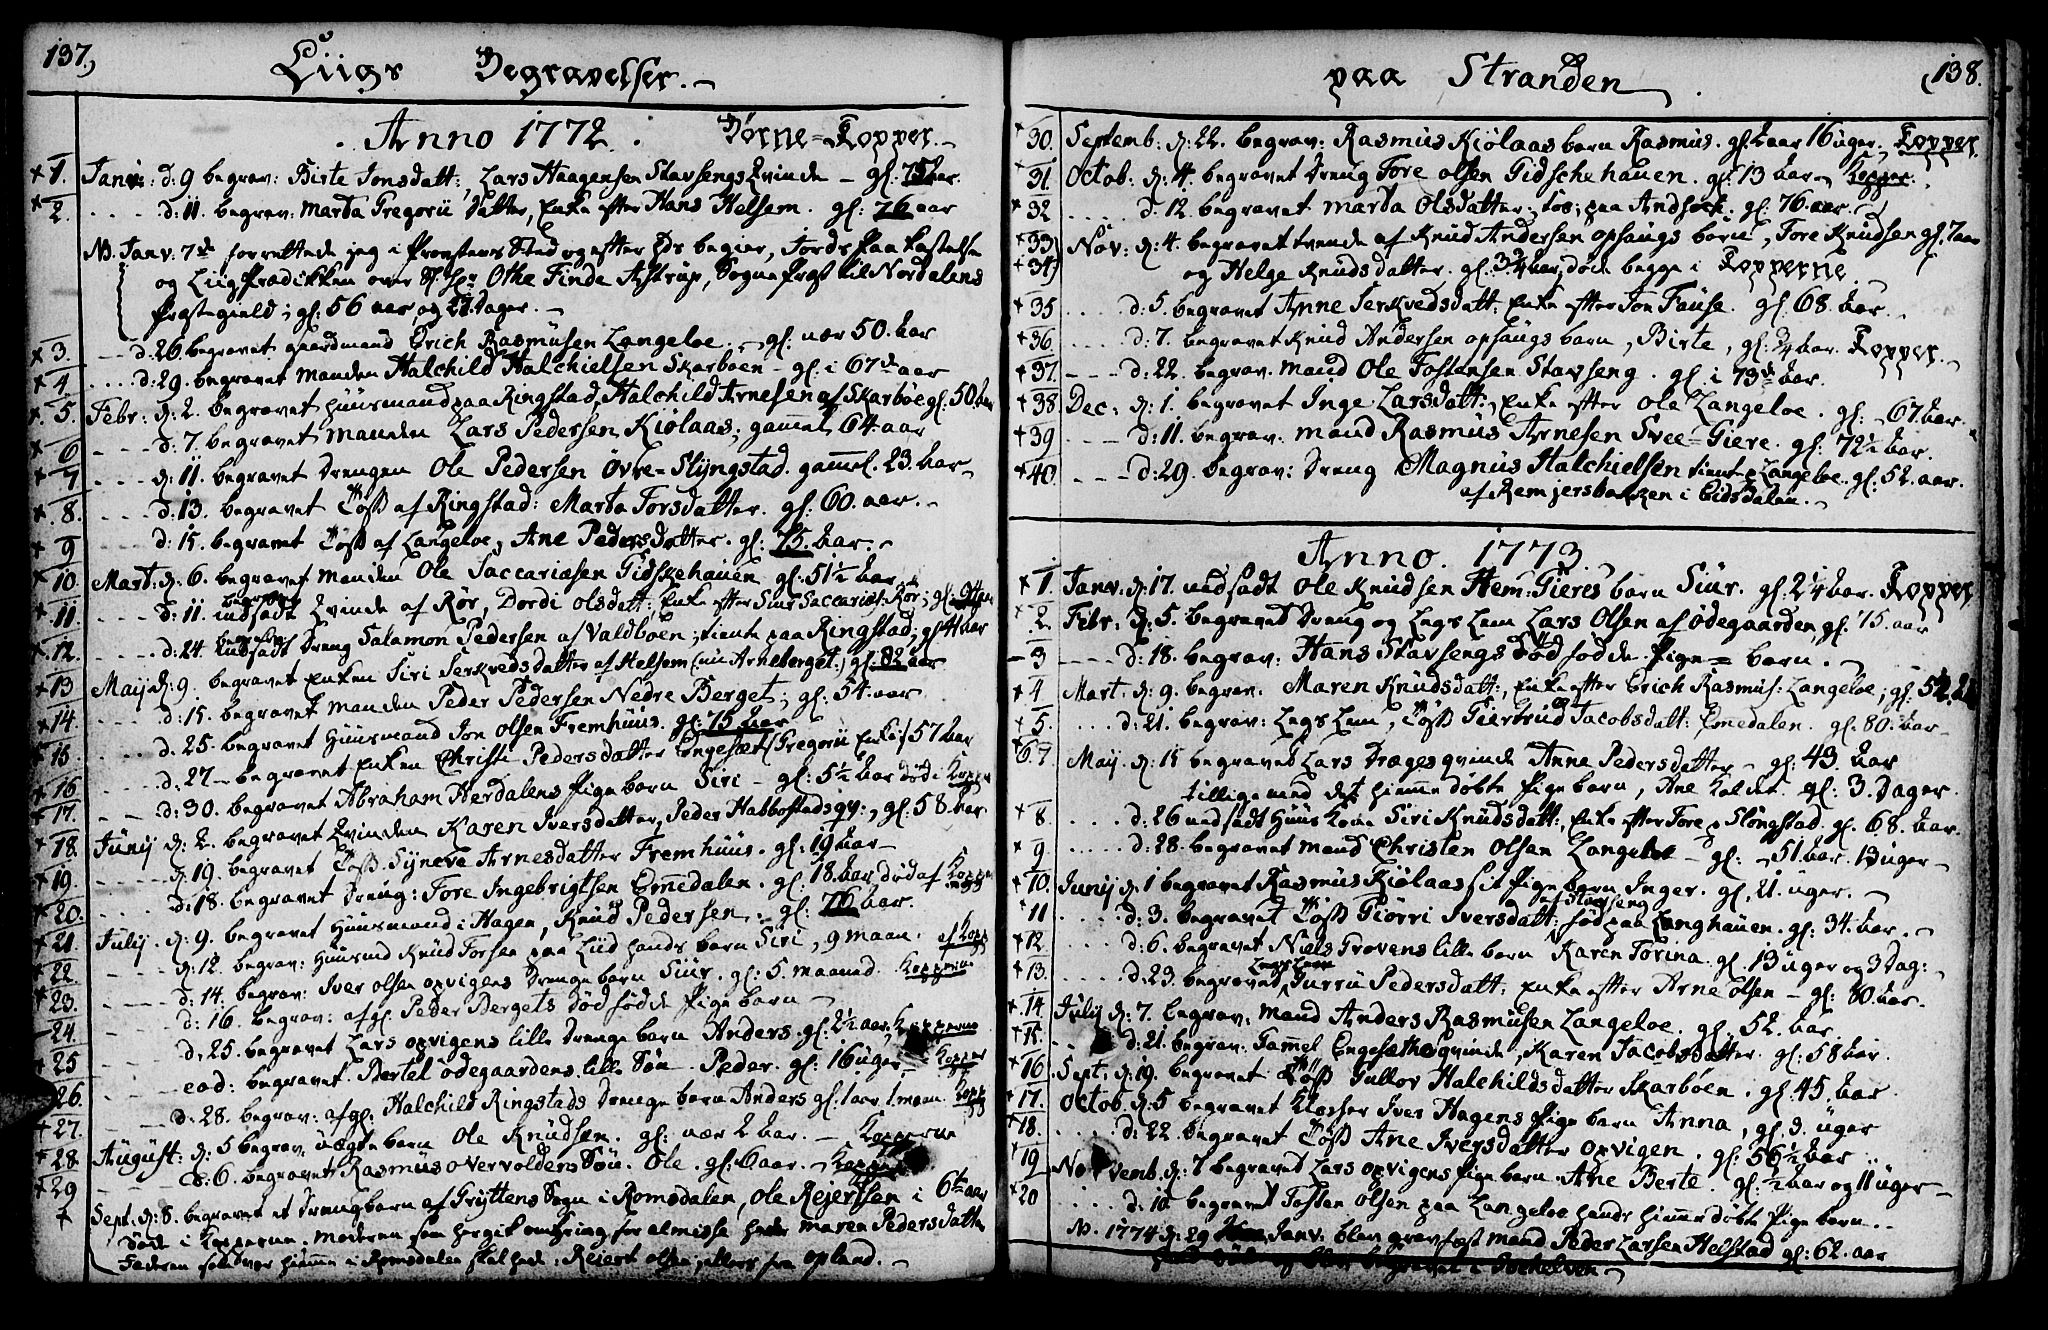 137.
Liigs Begravelser.
Anno 1772. Börne=Kopper.
1. Janv: d: 9 begrav: Birte Jonsdatt: Lars Haagensen Stavsengs Qvinde - gl: 75 aar.
2. .... d: 11. begrav: Marta Gregorii Datter, Enke efter Hans Helsem. gl: 76 aar
NB. Janv. 7de forrettede jeg i Provstens Sted og efter Eds begier, Jords Paa Kastelsen
og Liig Prædikken over Sl: Hr: Othe Finde Astrup, Sogne Præst til Nordalens
Præstegield; gl: 56 aar og 22. Dager.
3. -- d. 26. begravet gaardmand Erich Rasmüsen Langeloe. - gl: nær 50. Aar
4. .... d: 29. begravet manden Halchild Halchielsen Skarboen - gl: i 67de aar
5. Febr: d: 2. begravet Hüüsmand paa Ringstad, Halchild Arnesen af Skarböe gl: 50. Aar
6. ---- d: 7. begravet manden Lars Pedersen Kiölaas; gammel 64. aar
7. .... d: 11. begravet Drengen Ole Pedersen Övre-Slyngstad. gammel. 23. Aar
8. .... d: 13. begravet Töss af Ringstad: Marta Torsdatter. gl: 60. aar.
9. --- d: 15. begravet Töss af Langeloe, Ane Pedersdatter. gl: 75. Aar.
10. Mart: d: 6. begravet manden Ole Saccariasen Gidskehauen gl: 51½ aar
11. .... d: 11. begravet Qvinde af Rör, Dordi Olsdatt: Enke efter Siur Saccarias: Rör; gl:
12. .... d: 24. begravet Dreng Salamon Pedersen af Valdboen; tiente paa Ringstad; gl: 41 aar
13. Maij d: 9. begravet Enken Siri Serkvedsdatter af Helsem (nü Arneberget) gl: 82 aar
14. ---- d: 15. begravet manden Peder Pedersen Nedre Berget; gl: 54. aar
15. .... d. 25. begravet Hüüsmand Jon Olsen Fremhüüs. gl: 75 Aar
.... d: 27 - begravet Enken Christi Pedersdatter Engesæt (Gregorii Enke) 57 aar
16. .... d: 30. begravet Abraham Herdalens Pige barn Siri - gl: 5½ Aar död i Kopp
17. -- begravet Qvinden Karen Iversdatter, Peder Habbostads qv:, gl: 58. Aar
18. Junij d: 2. begravet Töss Synneve Arnesdatter Fremhüüs. gl: 19 Aar
19. .... d: 18. begravet Dreng: Tore Ingebrigtsen Emmedalen. gl: 18. Aar död af Kopp
20. .... begravet Hüüsmand i Hagen, Knüd Pedersen. gl: 76 Aar.
21. Julij d: 9. begrav: Huusmd Knüd Torsen paa Liid hands barn Siri, 9 maan. af Kopp
22. .... d: 12. begrav: Iver Olsen Opvigens Drenge barn Siur. gl: 5. maaned. Kopperne
23. .... d: 14. begrav: afgl: Peder Bergets Död födde Pige barn
24. .... d: 16. begravet Lars Opvigens lille Drenge barn Anders. gl: 2½ aar, Kopperne
25. .... d: 25. begravet Bertel Ödegaardens lille Sön Peder. gl: 16 üger - Kopper
26. .... eod: begrav: afgl: Halchild Ringstads Drenge barn Anders gl: 1 aar 1. maan. Kopp
27. .... d: 28. begrav. uægte barn Ole Knüdsen. gl: nær 2 Aar. - Kopperne
28. August: d: 5 begravet Rasmüs Overvolders Sön. Ole. gl: 6 aar.
29. Sept: d: 8. begravet et Drengbarn af Gryttens Sogn i Romsdalen, Ole Rejersen i 6te aar
döde i Kopperne. Moderen som her gik omkring for almisse heder Maren Pedersdatter
Faderen hiemme i Romsdalen skal hede: Reiert Olsen, ellers fra Opland.
paa Stranden
138.
30. Septemb: d: 22. begrav: Rasmüs Kiölaas barn Rasmüs. gl: 2 aar 16 üger. Kopper.
31. Octob: d: 4. begravet Dreng Tore Olsen Gidschehauen. gl: 13 Aar. Kopper.
32 .... d: 12. begravet Marta Olsdatter Tös; paa Andsoch: gl: 76. aar.
33 Nov: d: 4. begravet tvende af Knüd Andersen Opsaugs barn, Tore Knüdsen gl. 7 aar
34 og Helge Knüdsdatter. gl: 3¾ Aar, döde begge i Kopperne
35 .... d: 5. begravet Anne Serkvedsdatt: Enke efter Jon Fause. gl: 68. Aar.
36 .... d: 7. begravet Knüd Andersen Opsaugs barn, Birte, gl: ¾ Aar. Kopper.
37. --- d: 22. begrav. mand Ole Tostensen Stavseng. gl: i 73de Aar.
38 Dec: d: 1. begravet Inge Larsdatt:, Enke efter Ole Langeloe. gl: - 67 Aar.
39 ---- d: 11. begrav: mand Rasmüs Arnesen Svee=Giere. gl: 72½ Aar.
40. ---- d: 29. begrav: Dreng Magnüs Halchielsen tient p: Langeloe. gl: 52. aar.
af Remjersbakken i Eidsdalen.
Anno. 1773.
1. Janv. d: 17. nedsadt Ole Knüdsen Hem=Gieres barn Siur. gl: 2¼ Aar. Kopper
2. Febr: d: 5. begravet Dreng og Legs Lem Lars Olsen af Ödegaarden, gl: 75. aar
3 ---- d: 18. begrav: Hans Stavsengs Död födde Pige=barn.
4 Mart: d: 9. begrav: Maren Knüdsdatt:, Enke efter Erich Rasmüs: Langeloe; gl:
5. ... d: 21. begrav: Legs Lem, Töss Giertrud Jacobsdatt: Emedalen. gl: 80. Aar
6.7. Maij. d: 15 begravet Lars Drages qvinde Anne Pedersdatter - gl: 43. Aar
tillige med det hiemme döbte Pige barn, Ane kaldet. gl: 3. Dager.
8. .... d: 26 nedsadt Hüüs Kone Siri Knüdsdatt:, Enke efter Tore p: Slöngstad. gl. 68. Aar.
9 ..... d: 28. begravet mand Christen Olsen Langeloe - gl: - 51 Aar. 13 üger
10. Junij d: 1 begravet Rasmüs Kiölaas sit Pige barn Inger. gl: 21. üger.
11 .... d: 3. begravet Töss Giörri Iversdatt: af Stavseng föd paa Langhauen. gl: 34. Aar.
12. .... d: 6. begravet Niels Grovens lille barn Karen Torina. gl: 13 üger og 3 Dag:
13. .... d: 23. begravet Legs Lem Gurru Pedersdatt: Enke efter Arne Olsen - gl: 80. Aar.
14 Julij d: 7. begrav: mand Anders Rasmüsen Langeloe. gl: 52. Aar.
15. ... d: 21. begrav: Gammel Engesæths qvinde, Karen Jacobsdatter. gl: 58 Aar.
16 Sept: d: 19. begravet Töss Gullov Halchildsdatter Skarböen. gl: 45. Aar.
17. Octob. d: 5 begravet Klocker Iver Hagens Pige barn Anna, gl: 9. üger
18. .... d: 22. begravet Töss Ane Iversdatter Opvigen. gl: 56½ Aar
19 Novemb. d: 7 begravet Lars Opvigens Pige barn Ane Berte. gl: ½ Aar og 11 üger
20 .... d: 10. begravet Tosten Olsen paa Langeloe hands hiemme döbte Pige barn.
NB. 1774 d: 29 Janv: blev gravfæst mand Peder Larsen Helstad gl: 62. aar